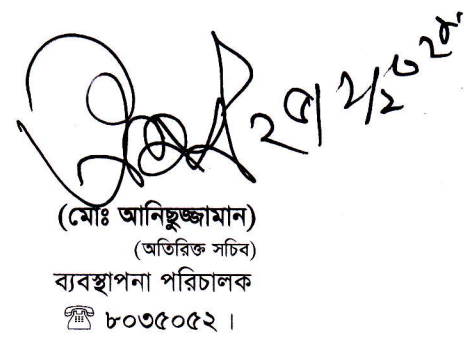 (মোঃ আনিছুজ্জামান)
(অতিরিক্ত সচিব)
ব্যবস্থাপনা পরিচালক
☏ ৮০৩৫০৫২ ।